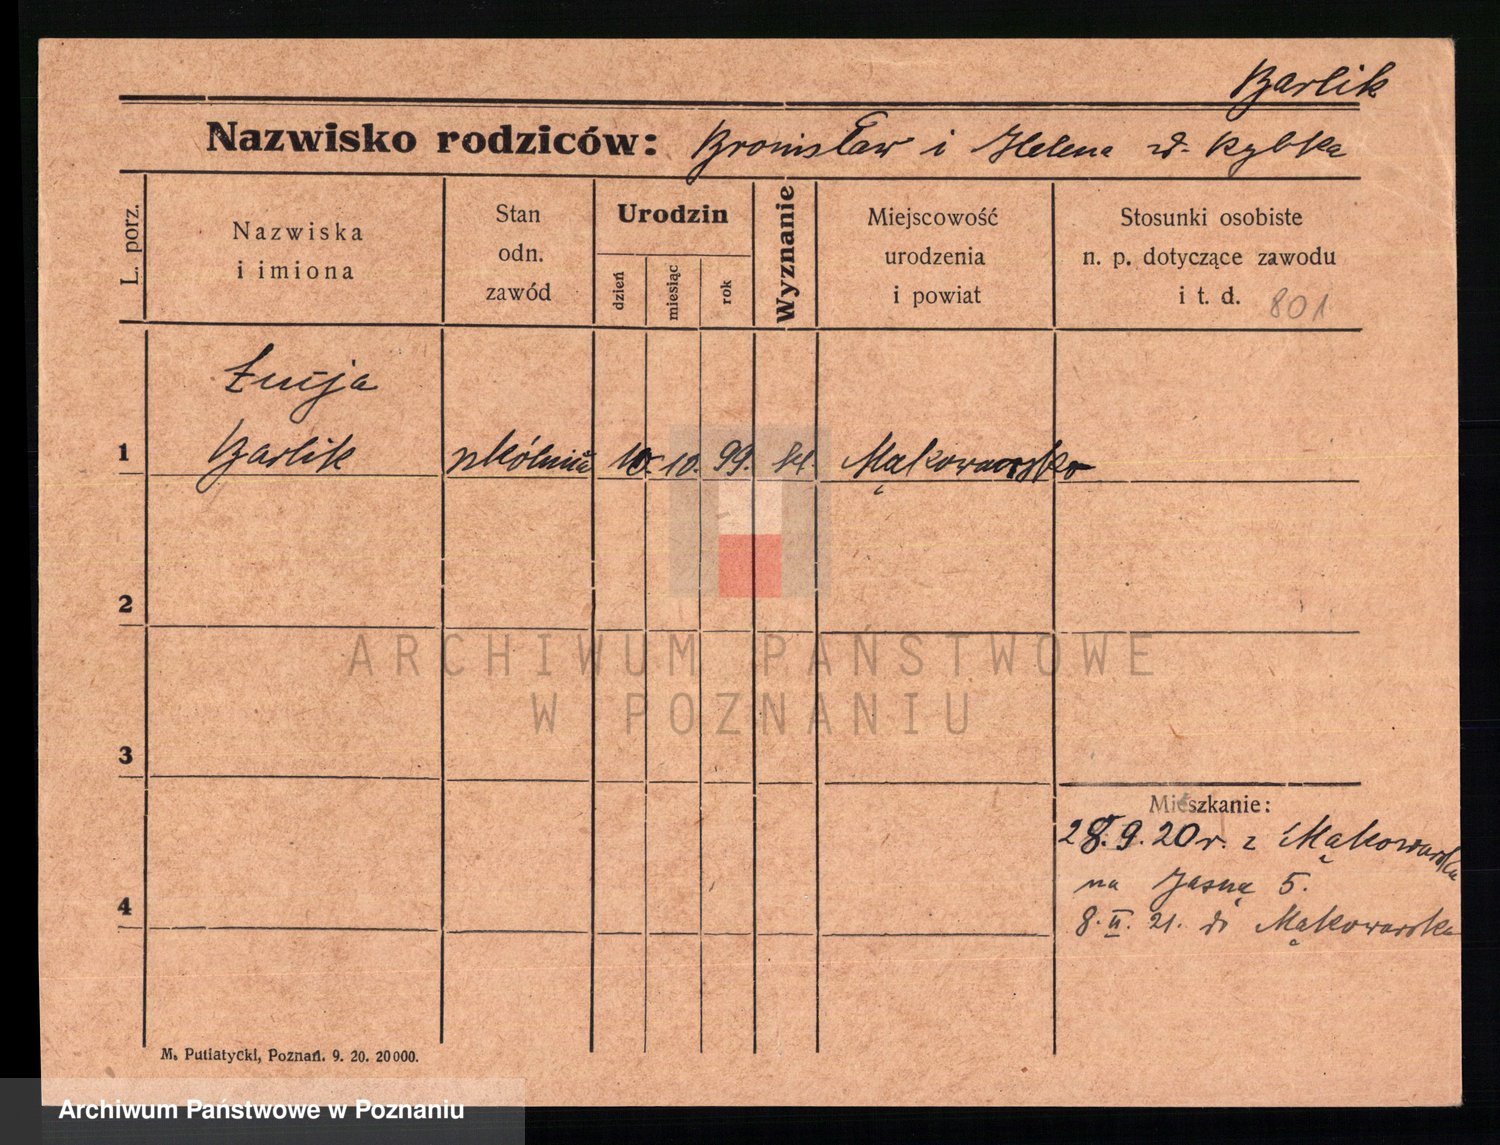 Barlik
Nazwisko rodziców: Bronisław i Helena z d. Rybka
L. porz.
Nazwiska
i imiona
Stan
odn.
zawód
Urodzin
dzień
miesiąc
rok
Wyznanie
Miejscowość
urodzenia
i powiat
Stosunki osobiste
n. p. dotyczące zawodu
i t. d. 801
Łucja
1 Barlik 10. 10. 99. kt. Mąkowarsko
2
ARCHIWUM PAŃSTWOWE
W POZNANIU
3
Mieszkanie:
28. 9. 20 r. z Mąkowarska
na Jasną 5.
4
8. II. 21. do Mąkowarska
M. Putiatycki, Poznań. 9. 20. 20000.
Archiwum Państwowe w Poznaniu